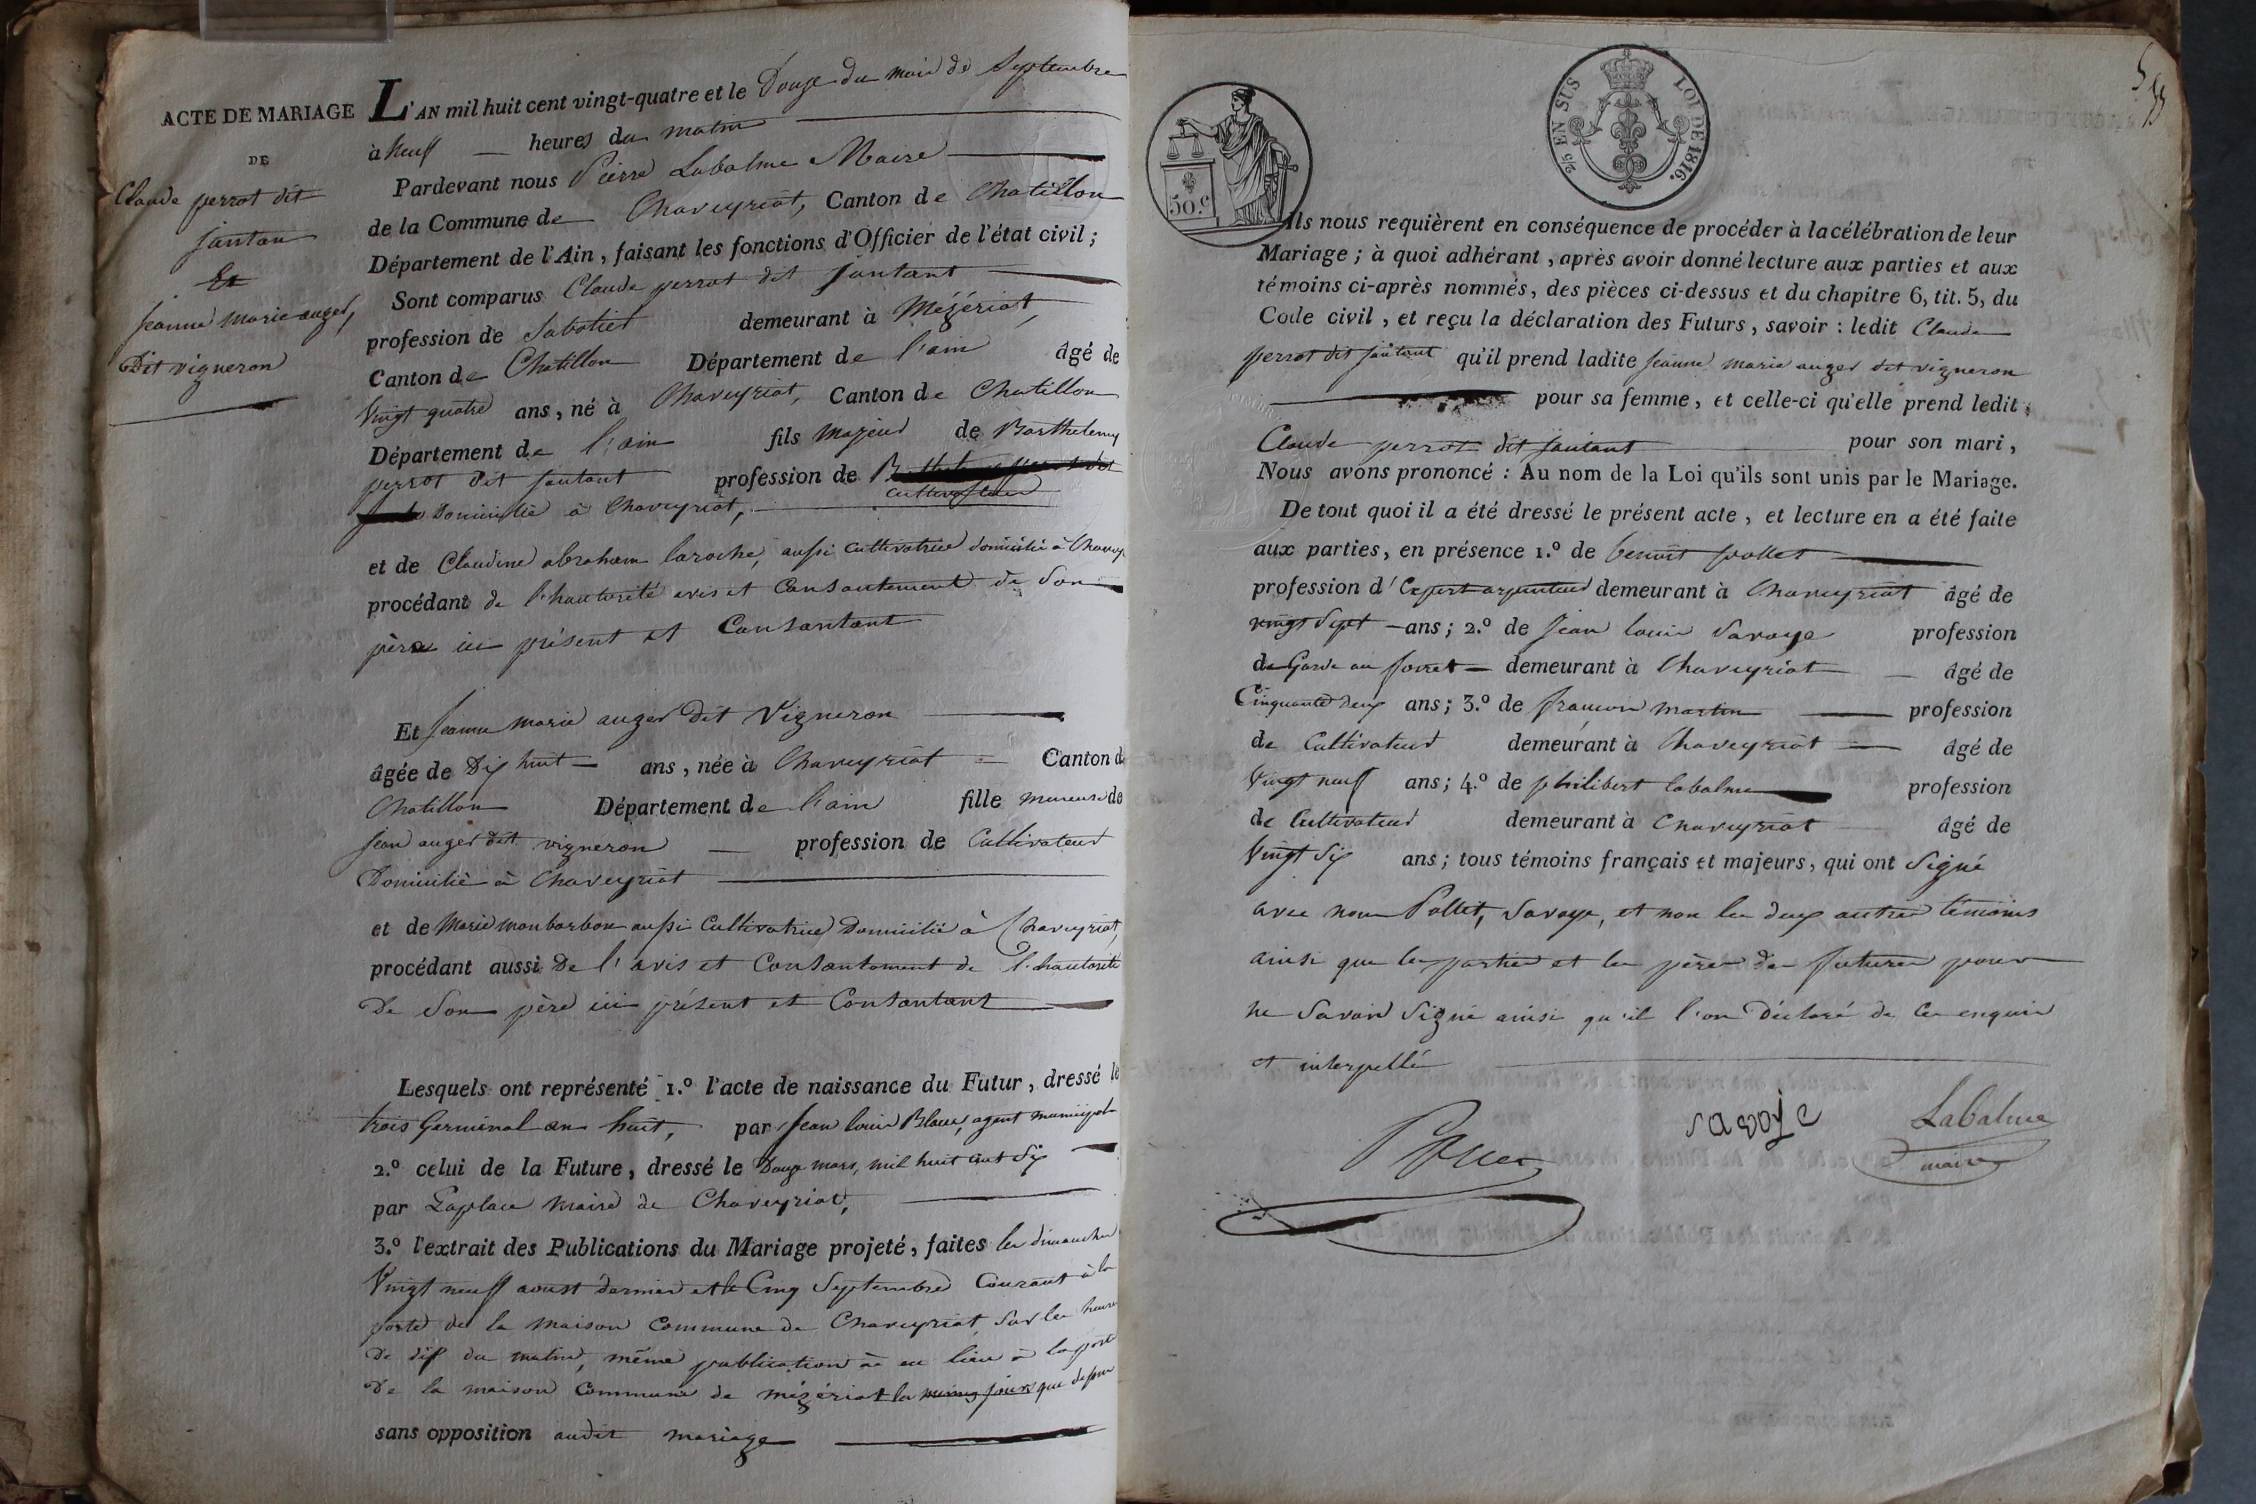 ACTE DE MARIAGE
DE
Claude perrot dit
jantan
Et
jeanne marie auger,
Dit vigneron
L'AN mil huit cent vingt-quatre et le Douze du mois de Septembre
à neuff heures du matin
Pardevant nous Pierre Labalme Maire
de la Commune de Chaveyriat, Canton de Chatillon
Département de l'Ain, faisant les fonctions d'Officier de l'état civil;
Sont comparus Claude perrot dit jantant
profession de Sabotier demeurant à Mézériat,
Canton de Chatillon Département de l'ain âgé de
Vingt quatre ans, né à Chaveyriat, Canton de Chatillon
Département de l'ain fils majeur de Barthelemy
perrot dit jantant profession de
cultivateur
Domicilié à Chaveyriat,
et de Claudine abraham laroche, aussi cultivatrice domicilié à Chavey
procédant de l'hautorité avis et Consantement de Son
père ici présent et Consantant
Et jeanne marie auger dit Vigneron
âgée de Dix huit ans, née à Chaveyriat Canton de
Chatillon Département de l'ain fille mineure de
jean auger dit vigneron profession de Cultivateur
Domicilié à Chaveyriat
et de Marie monbarbon aussi Cultivatrice Domicilié à Chaveyriat,
procédant aussi De l'avis et Consantement de l'hautorité
De Son père ici présent et Consantant
Lesquels ont représenté 1.º l'acte de naissance du Futur, dressé le
trois Germinal an huit, par Jean louis Blanc, agent municipal
2.º celui de la Future, dressé le Douze mars, mil huit cent Six
par Laplace maire de Chaveyriat,
3.º l'extrait des Publications du Mariage projeté, faites les dimanches
Vingt neuff aoust dernier et le Cinq Septembre Courant à la
porte de la maison Commune de Chaveyriat, sur les heures
de dix du matin, même publication à eu lieu à la porte
De la maison Commune de mézériat les mêmes jours que dessus
sans opposition audit mariage
50.c
2/5 EN SUS LOI DE 1816.
Ils nous requièrent en conséquence de procéder à la célébration de leur
Mariage; à quoi adhérant, après avoir donné lecture aux parties et aux
témoins ci-après nommés, des pièces ci-dessus et du chapitre 6, tit. 5, du
Code civil, et reçu la déclaration des Futurs, savoir: ledit Claude
perrot dit jantant qu'il prend ladite jeanne marie auger dit vigneron
pour sa femme, et celle-ci qu'elle prend ledit
Claude perrot dit jantant pour son mari,
Nous avons prononcé: Au nom de la Loi qu'ils sont unis par le Mariage.
De tout quoi il a été dressé le présent acte, et lecture en a été faite
aux parties, en présence 1.º de benoit pollet
profession d'Expert arpenteur demeurant à Chaveyriat âgé de
vingt Sept ans; 2.º de jean louis Savoye profession
de Garde au forret demeurant à Chaveyriat âgé de
Cinquante deux ans; 3.º de francois martin profession
de Cultivateur demeurant à Chaveyriat âgé de
Vingt neuff ans; 4.º de philibert labalme profession
de Cultivateur demeurant à Chaveyriat âgé de
Vingt Six ans; tous témoins français et majeurs, qui ont Signé
avec nous Pollet, Savoye, et non les deux autres témoins
ainsi que les parties et les pères des futures pour
ne Savoir Signé ainsi qu'il l'on Déclaré de ce enquis
et interpellé
Pollet
savoye
Labalme
maire